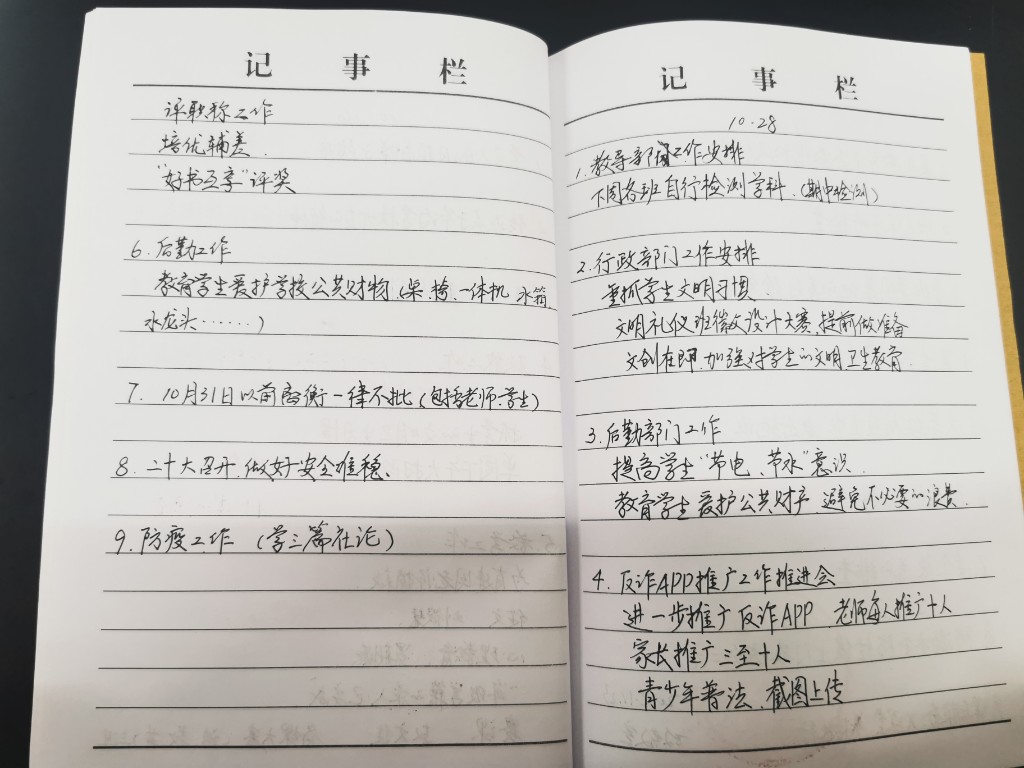 记事栏
评职称工作
培优辅差.
“好书互享”评奖
6.后勤工作
教育学生爱护学校公共财物(桌、椅、一体机 水箱
水龙头……)
7. 10月31日以前离衡一律不批(包括老师学生)
8.二十大召开,做好安全维稳、
9.防疫工作 (学三篇社论)
记事栏
10.28
1.教导部门工作安排
下周各班自行检测学科.(期中检测)
2.行政部门工作安排
重抓学生文明习惯.
文明礼仪班徽设计大赛,提前做准备
文创在即.加强对学生的文明卫生教育.
3.后勤部门工作
提高学生“节电、节水”意识.
教育学生爱护公共财产 避免不必要的浪费.
4.反诈APP推广工作推进会
进一步推广反诈APP 老师每人推广十人
家长推广三至十人
青少年普法.截图上传